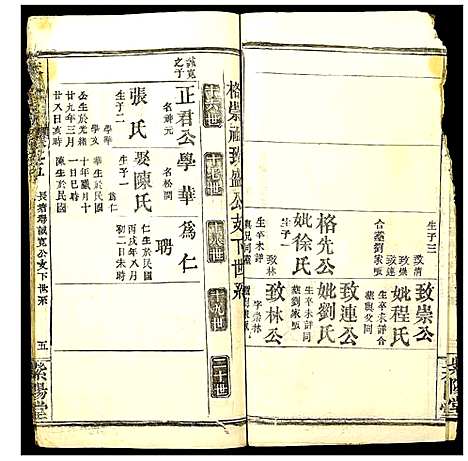 生子三
致崇
致連
致林
合塟劉家畈
致崇公
妣程氏
生卒未詳合
塟與父同
格先公
妣徐氏
生子一
生卒未詳
致連公
妣劉氏
生卒未詳同
塟劉家畈
致林公
字崇林
格崇祖致盛公支下世系
十六世
十七世
十八世
十九世
二十世
誠寬
之子
正君公
名神元
張氏
生子二
學華
學文
公生於光緒
廿九年三月
廿八日亥時
學華
名松閏
娶陳氏
生子一
爲仁
華生於民國
十年臘月十
一日巳時
陳生於民國
爲仁
聘
仁生於民國
丙戌年八月
初二日未時
長㙟琈誠寬公支下世系
五
紫陽堂